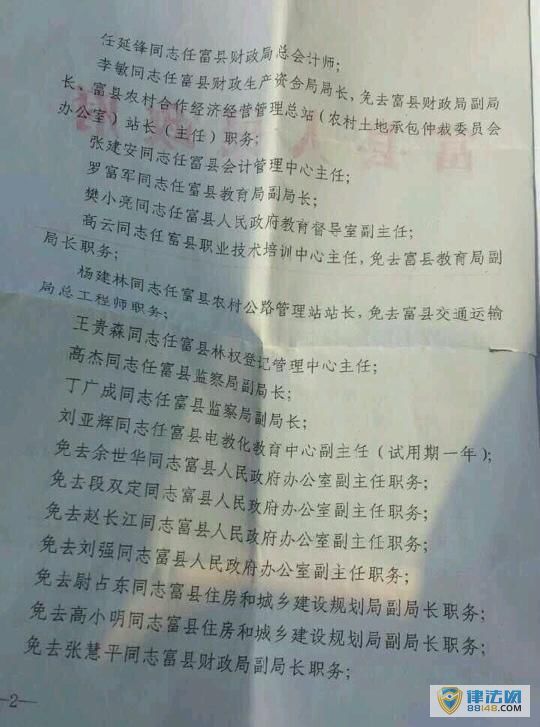 任延锋同志任富县财政局总会计师;
李敏同志任富县财政生产资务局局长, 免去富县财政局副局
长、富县农村合作经济经营管理总站(农村土地承包仲裁委员会
办公室)站长(主任)职务;
张建安同志任富县会计管理中心主任;
罗富军同志任富县教育局副局长;
樊小亮同志任富县人民政府教育督导室副主任;
高云同志任富县职业技术培训中心主任, 免去富县教育局副
局长职务;
杨建林同志任富县农村公路管理站站长, 免去富县交通运输
局总工程师职务;
王贵森同志任富县林权登记管理中心主任;
高杰同志任富县监察局副局长;
丁广成同志任富县监察局副局长;
刘亚辉同志任富县电教化教育中心副主任(试用期一年);
免去余世华同志富县人民政府办公室副主任职务;
免去段双定同志富县人民政府办公室副主任职务;
免去赵长江同志富县人民政府办公室副主任职务;
免去刘强同志富县人民政府办公室副主任职务;
免去尉占东同志富县住房和城乡建设规划局副局长职务;
免去高小明同志富县住房和城乡建设规划局副局长职务;
免去张慧平同志富县财政局副局长职务;
—2—
律法网
88148.com